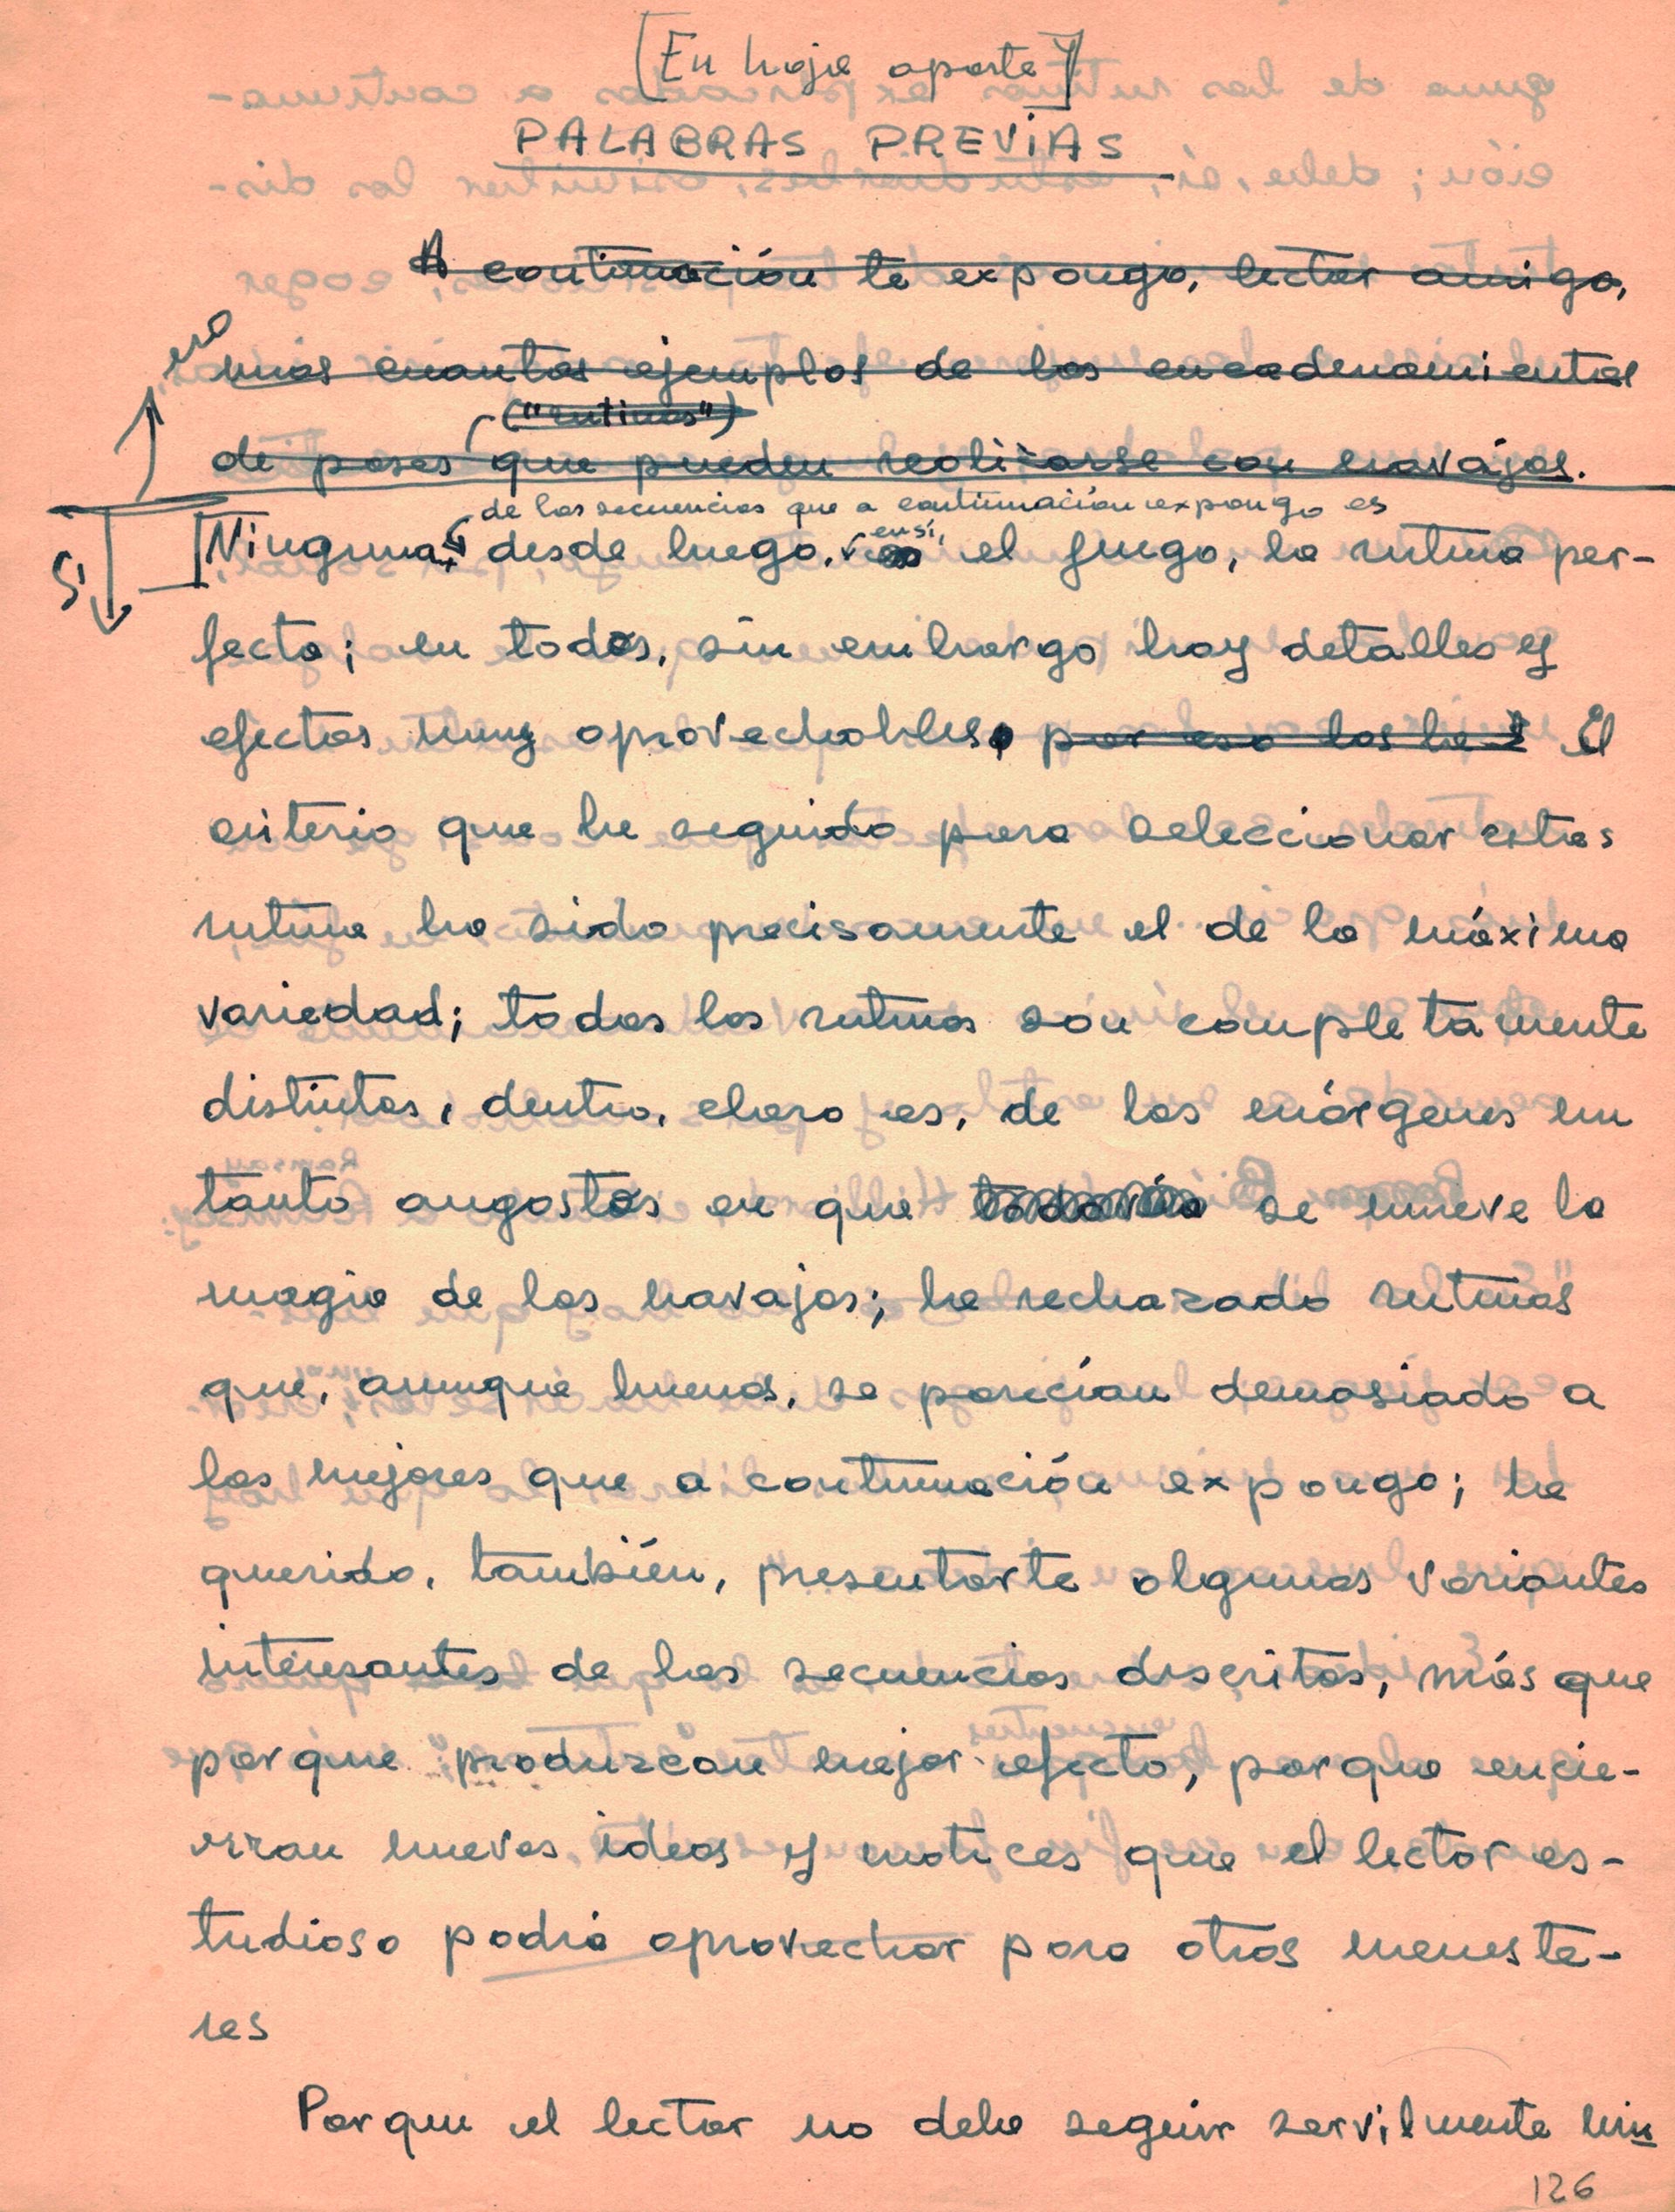 [En hoja aparte]
PALABRAS PREVIAS
A continuación te expongo, lector amigo,
unos cuantos ejemplos de los encadenamientos
("rutinas")
de pases que pueden realizarse con navajas.
de las secuencias que a continuación expongo es
Ninguna, desde luego, en sí, el juego, la rutina per-
Sí
fecta; en todas, sin embargo hay detalles y
efectos muy aprovechables. por eso los he El
criterio que he seguido para seleccionar estas
rutina ha sido precisamente el de la máxima
variedad; todas las rutinas son completamente
distintas, dentro, claro es, de los márgenes un
tanto angostos en que todavía se mueve la
magia de las navajas; he rechazado rutinas
que, aunque buenas, se parecían demasiado a
las mejores que a continuación expongo; he
querido, también, presentarte algunas variantes
interesantes de las secuencias descritas, más que
porque produzcan mejor efecto, porque encie-
rran nuevas ideas y matices que el lector es-
tudioso podrá aprovechar para otros meneste-
res
Porque el lector no debe seguir servilmente nin
126